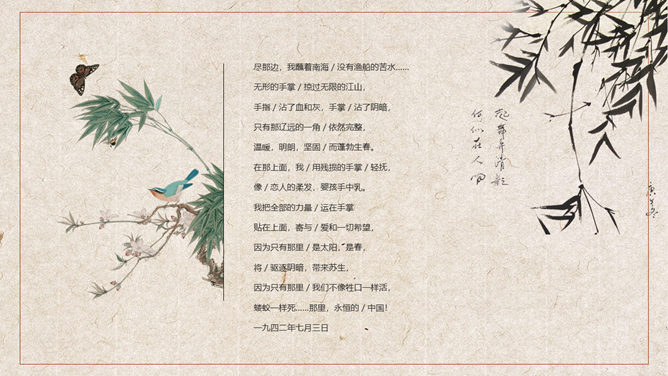 尽那边，我蘸着南海 / 没有渔船的苦水……
无形的手掌 / 掠过无限的江山，
手指 / 沾了血和灰，手掌 / 沾了阴暗，
只有那辽远的一角 / 依然完整，
温暖，明朗，坚固 / 而蓬勃生春。
在那上面，我 / 用残损的手掌 / 轻抚，
像 / 恋人的柔发，婴孩手中乳。
我把全部的力量 / 运在手掌
贴在上面，寄与 / 爱和一切希望，
因为只有那里 / 是太阳，是春，
将 / 驱逐阴暗，带来苏生，
因为只有那里 / 我们不像牲口一样活，
蝼蚁一样死……那里，永恒的 / 中国！
一九四二年七月三日
起舞弄清影
何似在人间